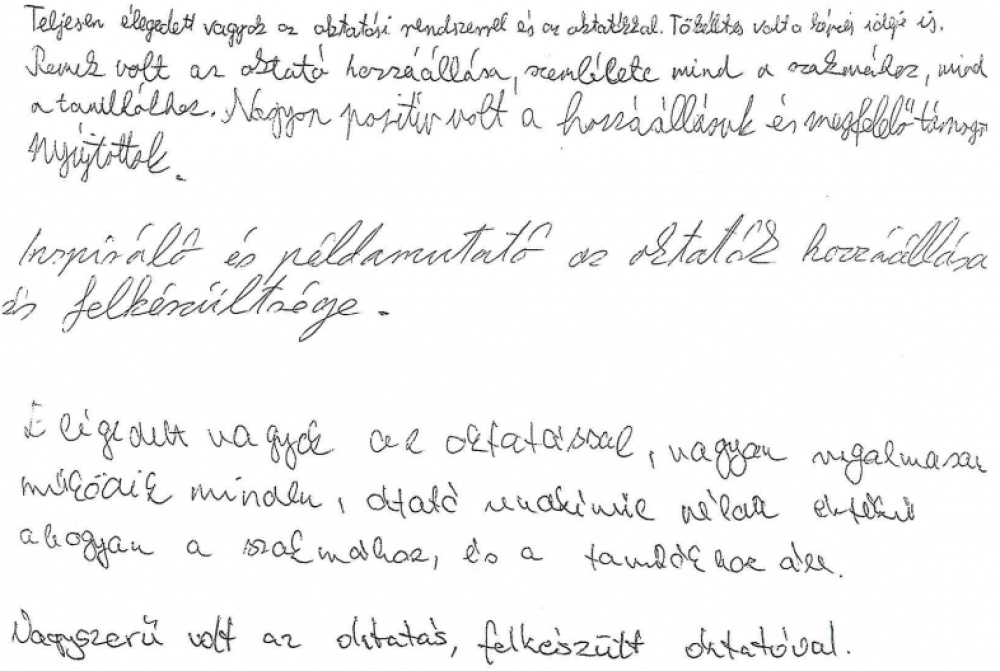 Teljesen elégedett vagyok az oktatási rendszerrel és az oktatókkal. Tökéletes volt a képzés ideje is.
Remek volt az oktató hozzáállása, szemlélete mind a szakmához, mind
a tanulókhoz. Nagyon pozitív volt a hozzáállásuk és megfelelő
nyújtottak.
Inspiráló és példamutató az oktatók hozzáállása
és felkészültsége.
Elégedett vagyok az oktatással, nagyon rugalmasan
működik minden, oktató nélküli
ahogyan a szakmához, és a tanulókhoz áll.
Nagyszerű volt az oktatás, felkészült oktatóval.